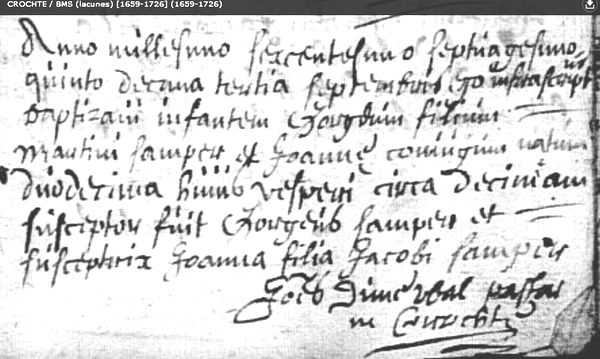 CROCHTE / BMS (lacunes) [1659-1726] (1659-1726)
Anno millesimo sexcentesimo septuagesimo
quinto decima tertia septembris ego infrascriptus
baptizavi infantem Georgium filium
Martini samper et Joannæ coniugum natum
duodecima huius vesperi circa decimam
susceptor fuit Georgius samper et
susceptrix Joanna filia Jacobi samper
Joës pastor
in Crochte